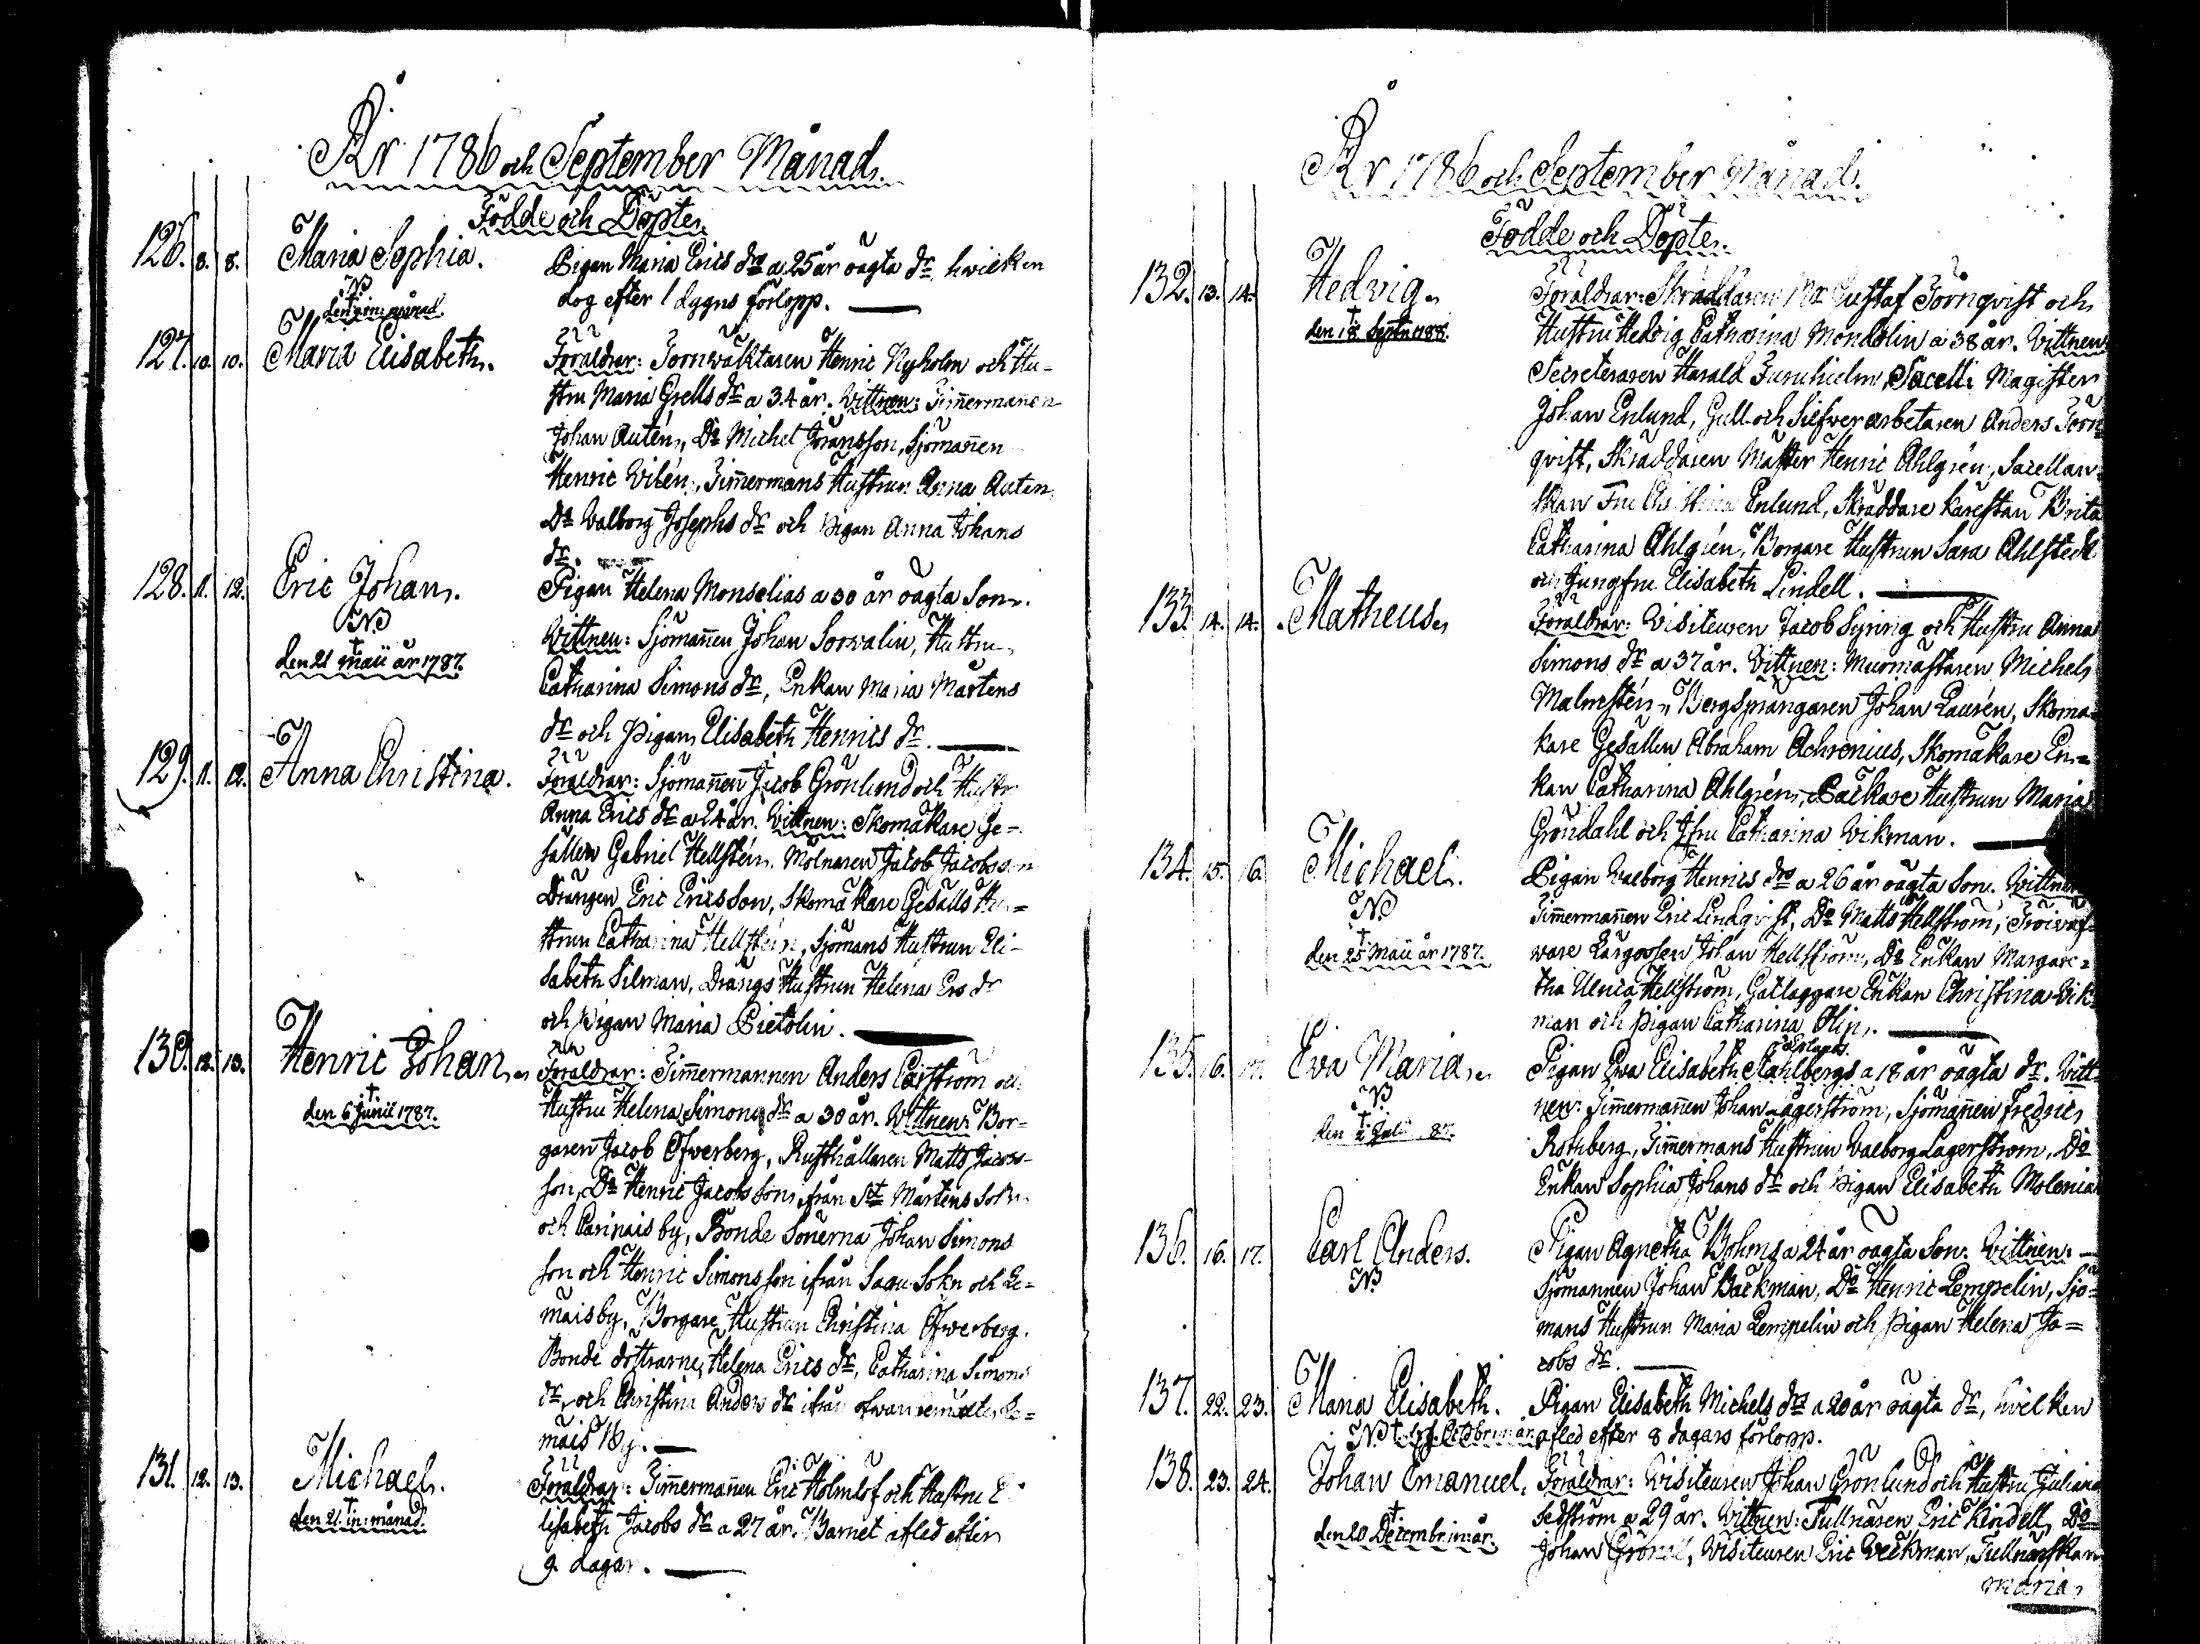 År 1786 och September Månad.
Födde och Döpte.
126. 8. 8. Maria Sophia. Pigan Maria Erics dr a 25 år oägta dr hvilken
N.
dog efter 1 dygns förlopp.
den in: månad.
127. 10. 10. Maria Elisabeth. Föräldrar: Tornwäktaren Henric Nyholm och Hu-
stru Maria Grells dr a 34 år. Wittnen: Timermanen
Johan Autén, Do Michel Jöransson, Sjömanen
Henric Wilén, Timermans Hustrun Anna Autén
Do Walborg Josephs dr och Pigan Anna Johans
dr.
128. 11. 12. Eric Johan. Pigan Helena Monselias a 30 år oägta Son.
N.
Wittnen: Sjömanen Johan Sorvalin, Hustru
den 21 Maii år 1787.
Catharina Simons dr, Enkan Maria Mårtens
dr och Pigan Elisabeth Henrics dr.
129. 11. 12. Anna Christina. Föräldrar: Sjömanen Jacob Grönlund och Hustr
Anna Erics dr a 24 år. Wittnen: Skomakare Ge-
sällen Gabriel Hellstén. Mölnaren Jacob Jacobsson
Drängen Eric Ericsson, Skomakare Gesälls Hu-
strun Catharina Hellstén, Sjömans Hustrun Eli-
sabeth Silman, Drängs Hustrun Helena Ers dr
och Pigan Maria Pietolin.
130. 12. 13. Henric Johan. Föräldrar: Timermannen Anders Carström och
den 6 Junii 1787.
Hustru Helena Simons dr a 30 år. Wittnen: Bor-
garen Jacob Öfwerberg, Rusthållaren Matts Jacobs-
son, Do Henric Jacobsson från St Mårtens Sokn
och Carinais by, Bonde Sönerna Johan Simons
son och Henric Simonsson ifrån Sagu Sokn och Le-
mais by, Borgare Hustrun Christina Öfwerberg.
Bonde döttrarne Helena Erics dr, Catharina Simons
dr och Christina Anders dr ifrån ofwannemälte Le-
mais By.
131. 12. 13. Michael. Föräldrar: Timermannen Eric Holmlöf och Hustru E-
den 21. in: månad.
lisabeth Jacobs dr a 27 år. Barnet afled efter
9. dagar.
År 1786 och September Månad.
Födde och Döpte.
132. 13. 14. Hedvig. Föräldrar: Skräddaren Mr Gustaf Törnqvist och
den 18 Septr 1788.
Hustru Hedvig Catharina Mondolin a 38 år. Wittnen
Secreteraren Harald Furuhielm, Sacelli Magister
Johan Enlund, Gull och Silfver arbetaren Anders Törn
qvist, Skräddaren Mäster Henric Ahlgrén, Sacellan-
skan Fru Enlund, Skräddare Kärestan Brita
Catharina Ahlgrén, Borgare Hustrun Sara Ahlstedt
och Jungfru Elisabeth Lindell.
133. 14. 14. Matheus. Föräldrar: Visiteuren Jacob Syring och Hustru Anna
Simons dr a 37 år. Wittnen: Murmästaren Michel
Malmstén, Bergsprängaren Johan Laurén, Skoma-
kare Gesällen Abraham Achrenius, Skomakare En-
kan Catharina Ahlgrén, Backare Hustrun Maria
Gröndahl och Jfru Catharina Wikman.
134. 15. 16. Michael. Pigan Walborg Henrics dr a 26 år oägta Son. Wittnen
N.
Timermannen Eric Lindqvist, Do Matts Hellström,
den 25 Maii år 1787.
Johan Hellström, Do Enkan Margare-
tha Ulrica Hellström, Enkan Christina Wik-
man och Pigan Catharina Olin.
135. 16. 17. Eva Maria. Pigan Eva Elisabeth Stahlbergs a 18 år oägta dr. Witt-
N.
nen: Timermannen Johan Lagerström, Sjömanen Fredric
den 2 Julii 87.
Rothberg, Timermans Hustrun Walborg Lagerström, Do
Enkan Sophia Johans dr och Pigan Elisabeth Molenia
136. 16. 17. Carl Anders. Pigan Agnetha Bohms a 24 år oägta Son. Wittnen:
N.
Sjömannen Johan Backman, Do Henric Lempelin, Sjö-
mans Hustrun Maria Lempelin och Pigan Helena Ja-
cobs dr.
137. 22. 23. Maria Elisabeth. Pigan Elisabeth Michels dr a 20 år oägta dr, hvilken
N. Octobr in: år. afled efter 8 dagars förlopp.
138. 23. 24. Johan Emanuel. Föräldrar: Visiteuren Johan Grönlund och Hustru Juliana
den 20 Decembr in: år.
Sedström a 29 år. Wittnen: Tullnären Eric Lindell, Do
Johan Visiteuren Eric Weckman, Tullnärskan
Maria